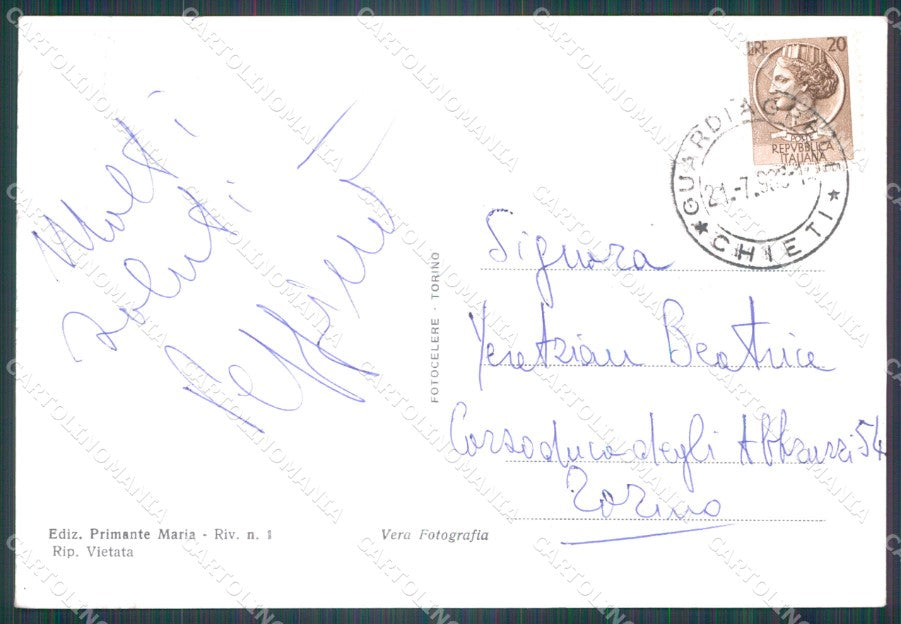 LIRE 20
POSTE
REPVBBLICA
ITALIANA
GUARDIAGRELE
21.-7.96
★ CHIETI ★
Molti
saluti
Peppino
Signora
Yeretzian Beatrice
Corso duca degli Abbruzzi 54
Torino
FOTOCELERE - TORINO
Ediz. Primante Maria - Riv. n. 1
Rip. Vietata
Vera Fotografia
CARTOLINOMANIA